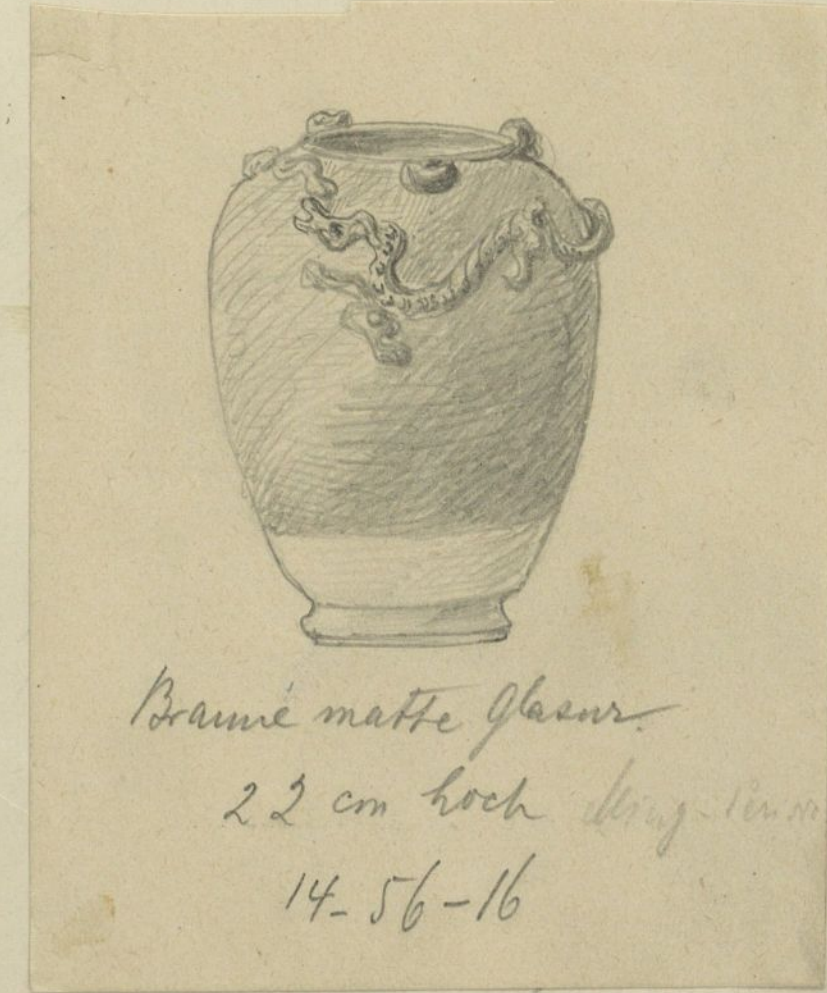 Braune matte Glasur.
22 cm hoch Ming-
14-56-16